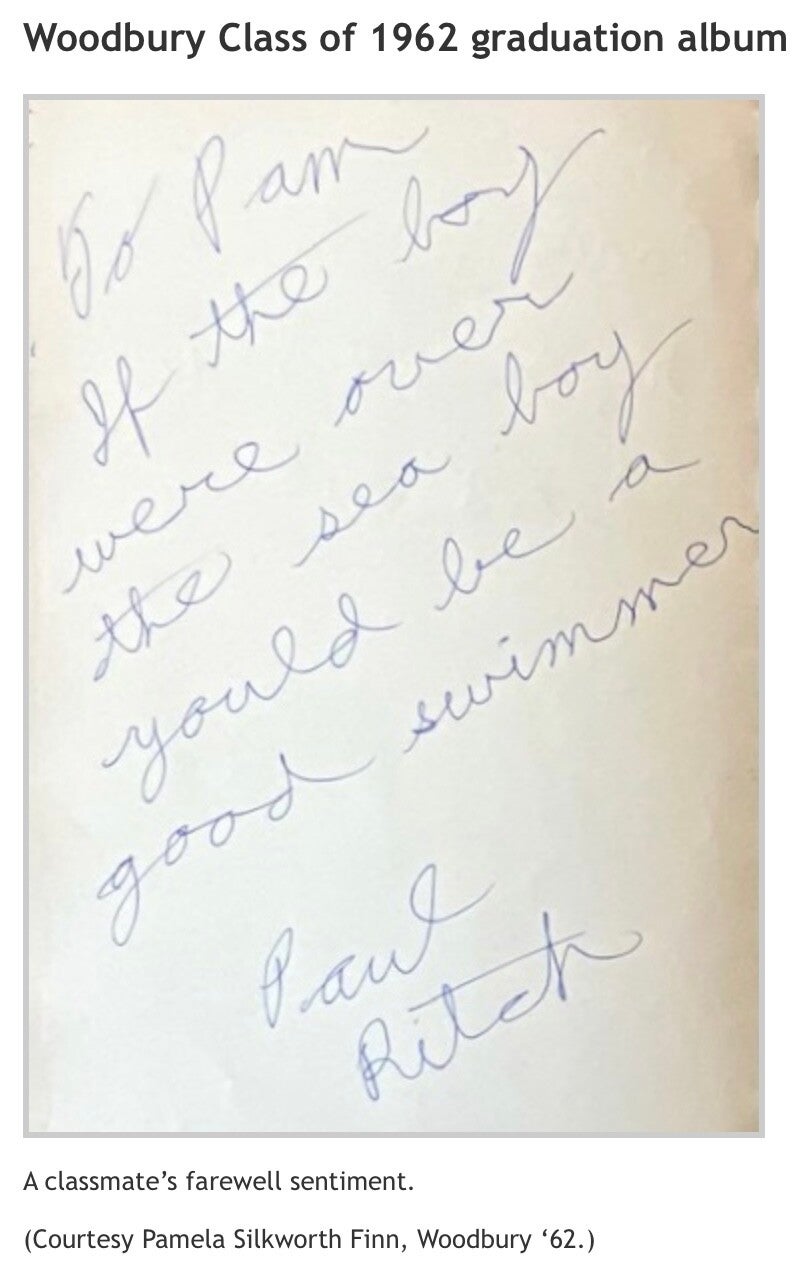 Woodbury Class of 1962 graduation album
To Pam
If the boy
were over
the sea boy
yould be a
good swimmer
Paul
Ritch
A classmate’s farewell sentiment.
(Courtesy Pamela Silkworth Finn, Woodbury ‘62.)